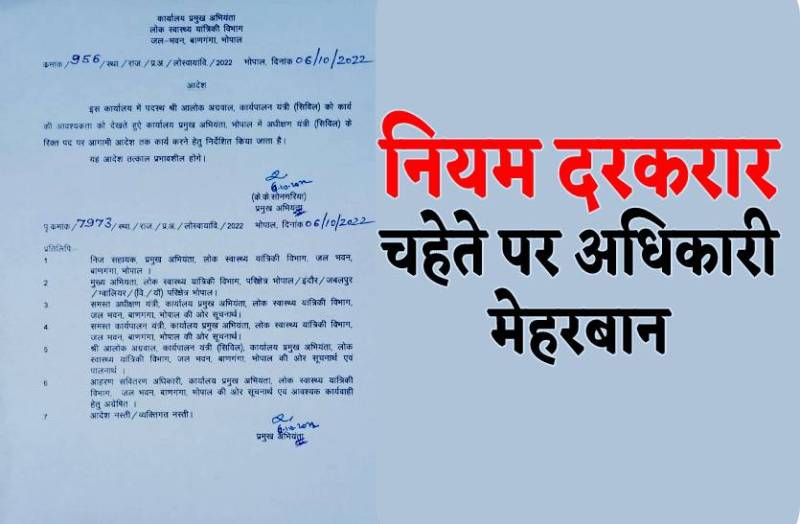 कार्यालय प्रमुख अभियंता
लोक स्वास्थ्य यांत्रिकी विभाग
जल-भवन, बाणगंगा, भोपाल
क्रमांक /956/स्था./राज./प्र.अ./लोस्वायांवि./2022 भोपाल, दिनांक 06/10/2022
आदेश
इस कार्यालय में पदस्थ श्री आलोक अग्रवाल, कार्यपालन यंत्री (सिविल) को कार्य
की आवश्यकता को देखते हुऐ कार्यालय प्रमुख अभियंता, भोपाल में अधीक्षण यंत्री (सिविल) के
रिक्त पद पर आगामी आदेश तक कार्य करने हेतु निर्देशित किया जाता है।
यह आदेश तत्काल प्रभावशील होंगे।
(के.के.सोनगरिया)
प्रमुख अभियंता
पृ.क्रमांक /7973/स्था./राज./प्र.अ./लोस्वायांवि./2022 भोपाल, दिनांक 06/10/2022
प्रतिलिपि:-
1 निज सहायक, प्रमुख अभियंता, लोक स्वास्थ्य यांत्रिकी विभाग, जल भवन,
बाणगंगा, भोपाल ।
2 मुख्य अभियंता, लोक स्वास्थ्य यांत्रिकी विभाग, परिक्षेत्र भोपाल/इंदौर/जबलपुर
/ग्वालियर/(वि./यां) परिक्षेत्र भोपाल।
3 समस्त अधीक्षण यंत्री, कार्यालय प्रमुख अभियंता, लोक स्वास्थ्य यांत्रिकी विभाग,
जल भवन, बाणगंगा, भोपाल की ओर सूचनार्थ।
4 समस्त कार्यपालन यंत्री, कार्यालय प्रमुख अभियंता, लोक स्वास्थ्य यांत्रिकी विभाग,
जल भवन, बाणगंगा, भोपाल की ओर सूचनार्थ।
5 श्री आलोक अग्रवाल, कार्यपालन यंत्री (सिविल), कार्यालय प्रमुख अभियंता, लोक
स्वास्थ्य यांत्रिकी विभाग, जल भवन, बाणगंगा, भोपाल की ओर सूचनार्थ एवं
पालनार्थ ।
6 आहरण सवितरण अधिकारी, कार्यालय प्रमुख अभियंता, लोक स्वास्थ्य यांत्रिकी
विभाग, जल भवन, बाणगंगा, भोपाल की ओर सूचनार्थ एवं आवश्यक कार्यवाही
हेतु अग्रेषित ।
7 आदेश नस्ती/व्यक्तिगत नस्ती।
प्रमुख अभियंता
नियम दरकरार
चहेते पर अधिकारी
मेहरबान